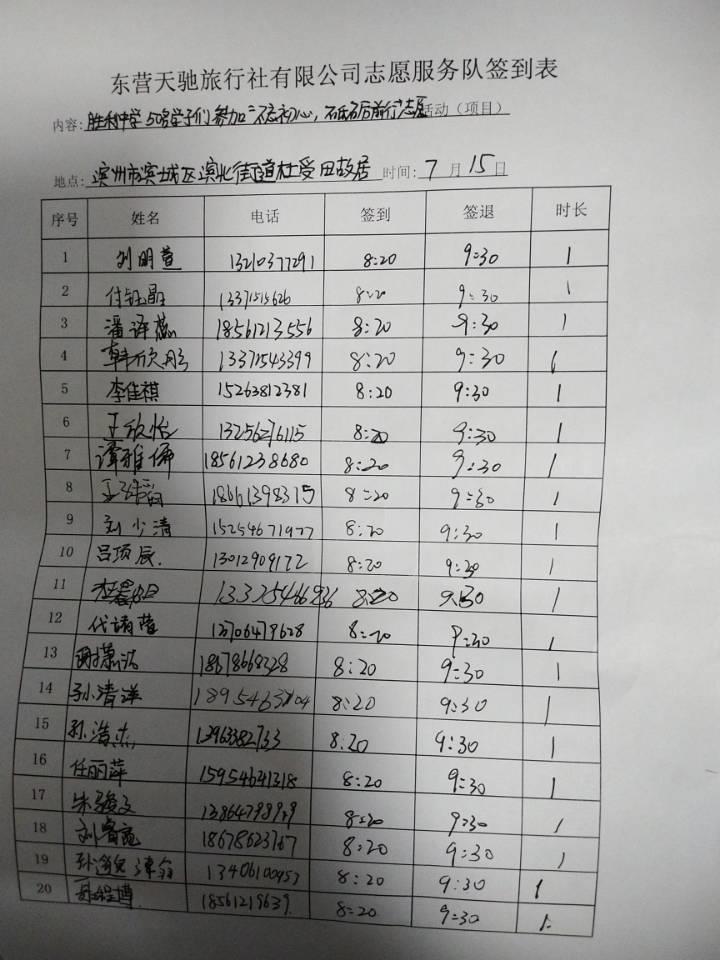 东营天驰旅行社有限公司志愿服务队签到表
内容: 胜利中学50名学子们参加“不忘初心，砥砺后前行”志愿活动（项目）
地点: 滨州市滨城区滨北街道杜受田故居 时间: 7月15日
序号 姓名 电话 签到 签退 时长
1 刘明萱 13210377291 8:20 9:30 1
2 付钰晶 13371515626 8:20 9:30 1
3 潘译蕊 18561213556 8:20 9:30 1
4 韩欣彤 13371543399 8:20 9:30 1
5 李佳祺 15263812381 8:20 9:30 1
6 王欣怡 13256276115 8:20 9:30 1
7 谭雅倩 18561238680 8:20 9:30 1
8 18661398315 8:20 9:30 1
9 刘少清 15254671977 8:20 9:30 1
10 吕项辰 13012909172 8:20 9:30 1
11 13375466936 8:20 9:30 1
12 代诗蕴 13706479628 8:20 9:30 1
13 18678668328 8:20 9:30 1
14 孙清洋 8:20 9:30 1
15 孙浩杰 13963382733 8:20 9:30 1
16 任丽萍 15954641318 8:20 9:30 1
17 朱骏文 8:20 9:30 1
18 18678623767 8:20 9:30 1
19 13406100953 8:20 9:30 1
20 18561219639 8:20 9:30 1